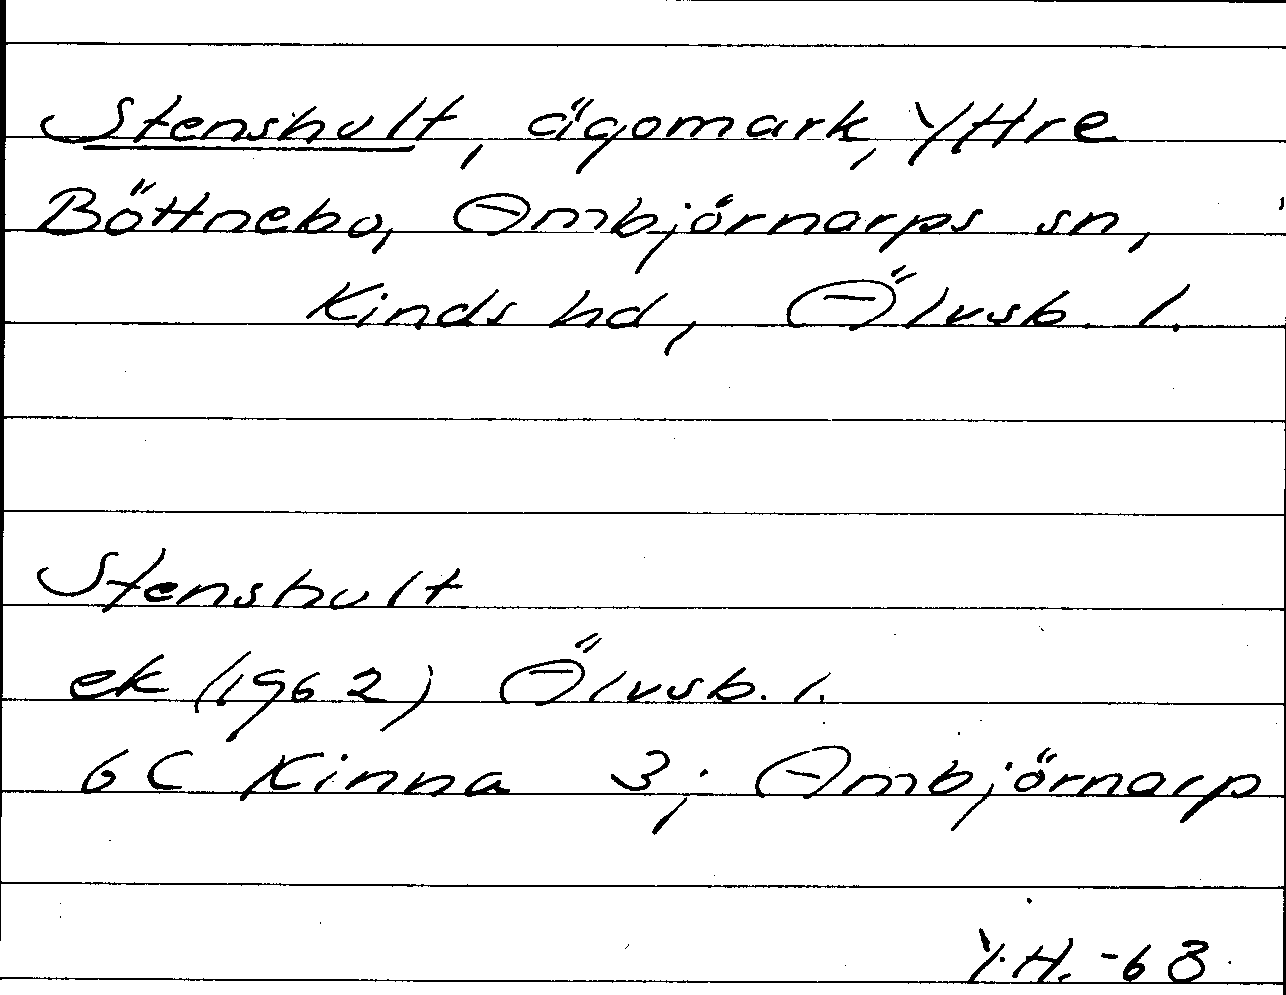 Stenshult, ägomark, Yttre
Böttnebo, Ambjörnarps sn,
Kinds hd, Älvsb. l.
Stenshult
ek (1962) Älvsb. l.
6C Kinna 3; Ambjörnarp
Y.H. -68